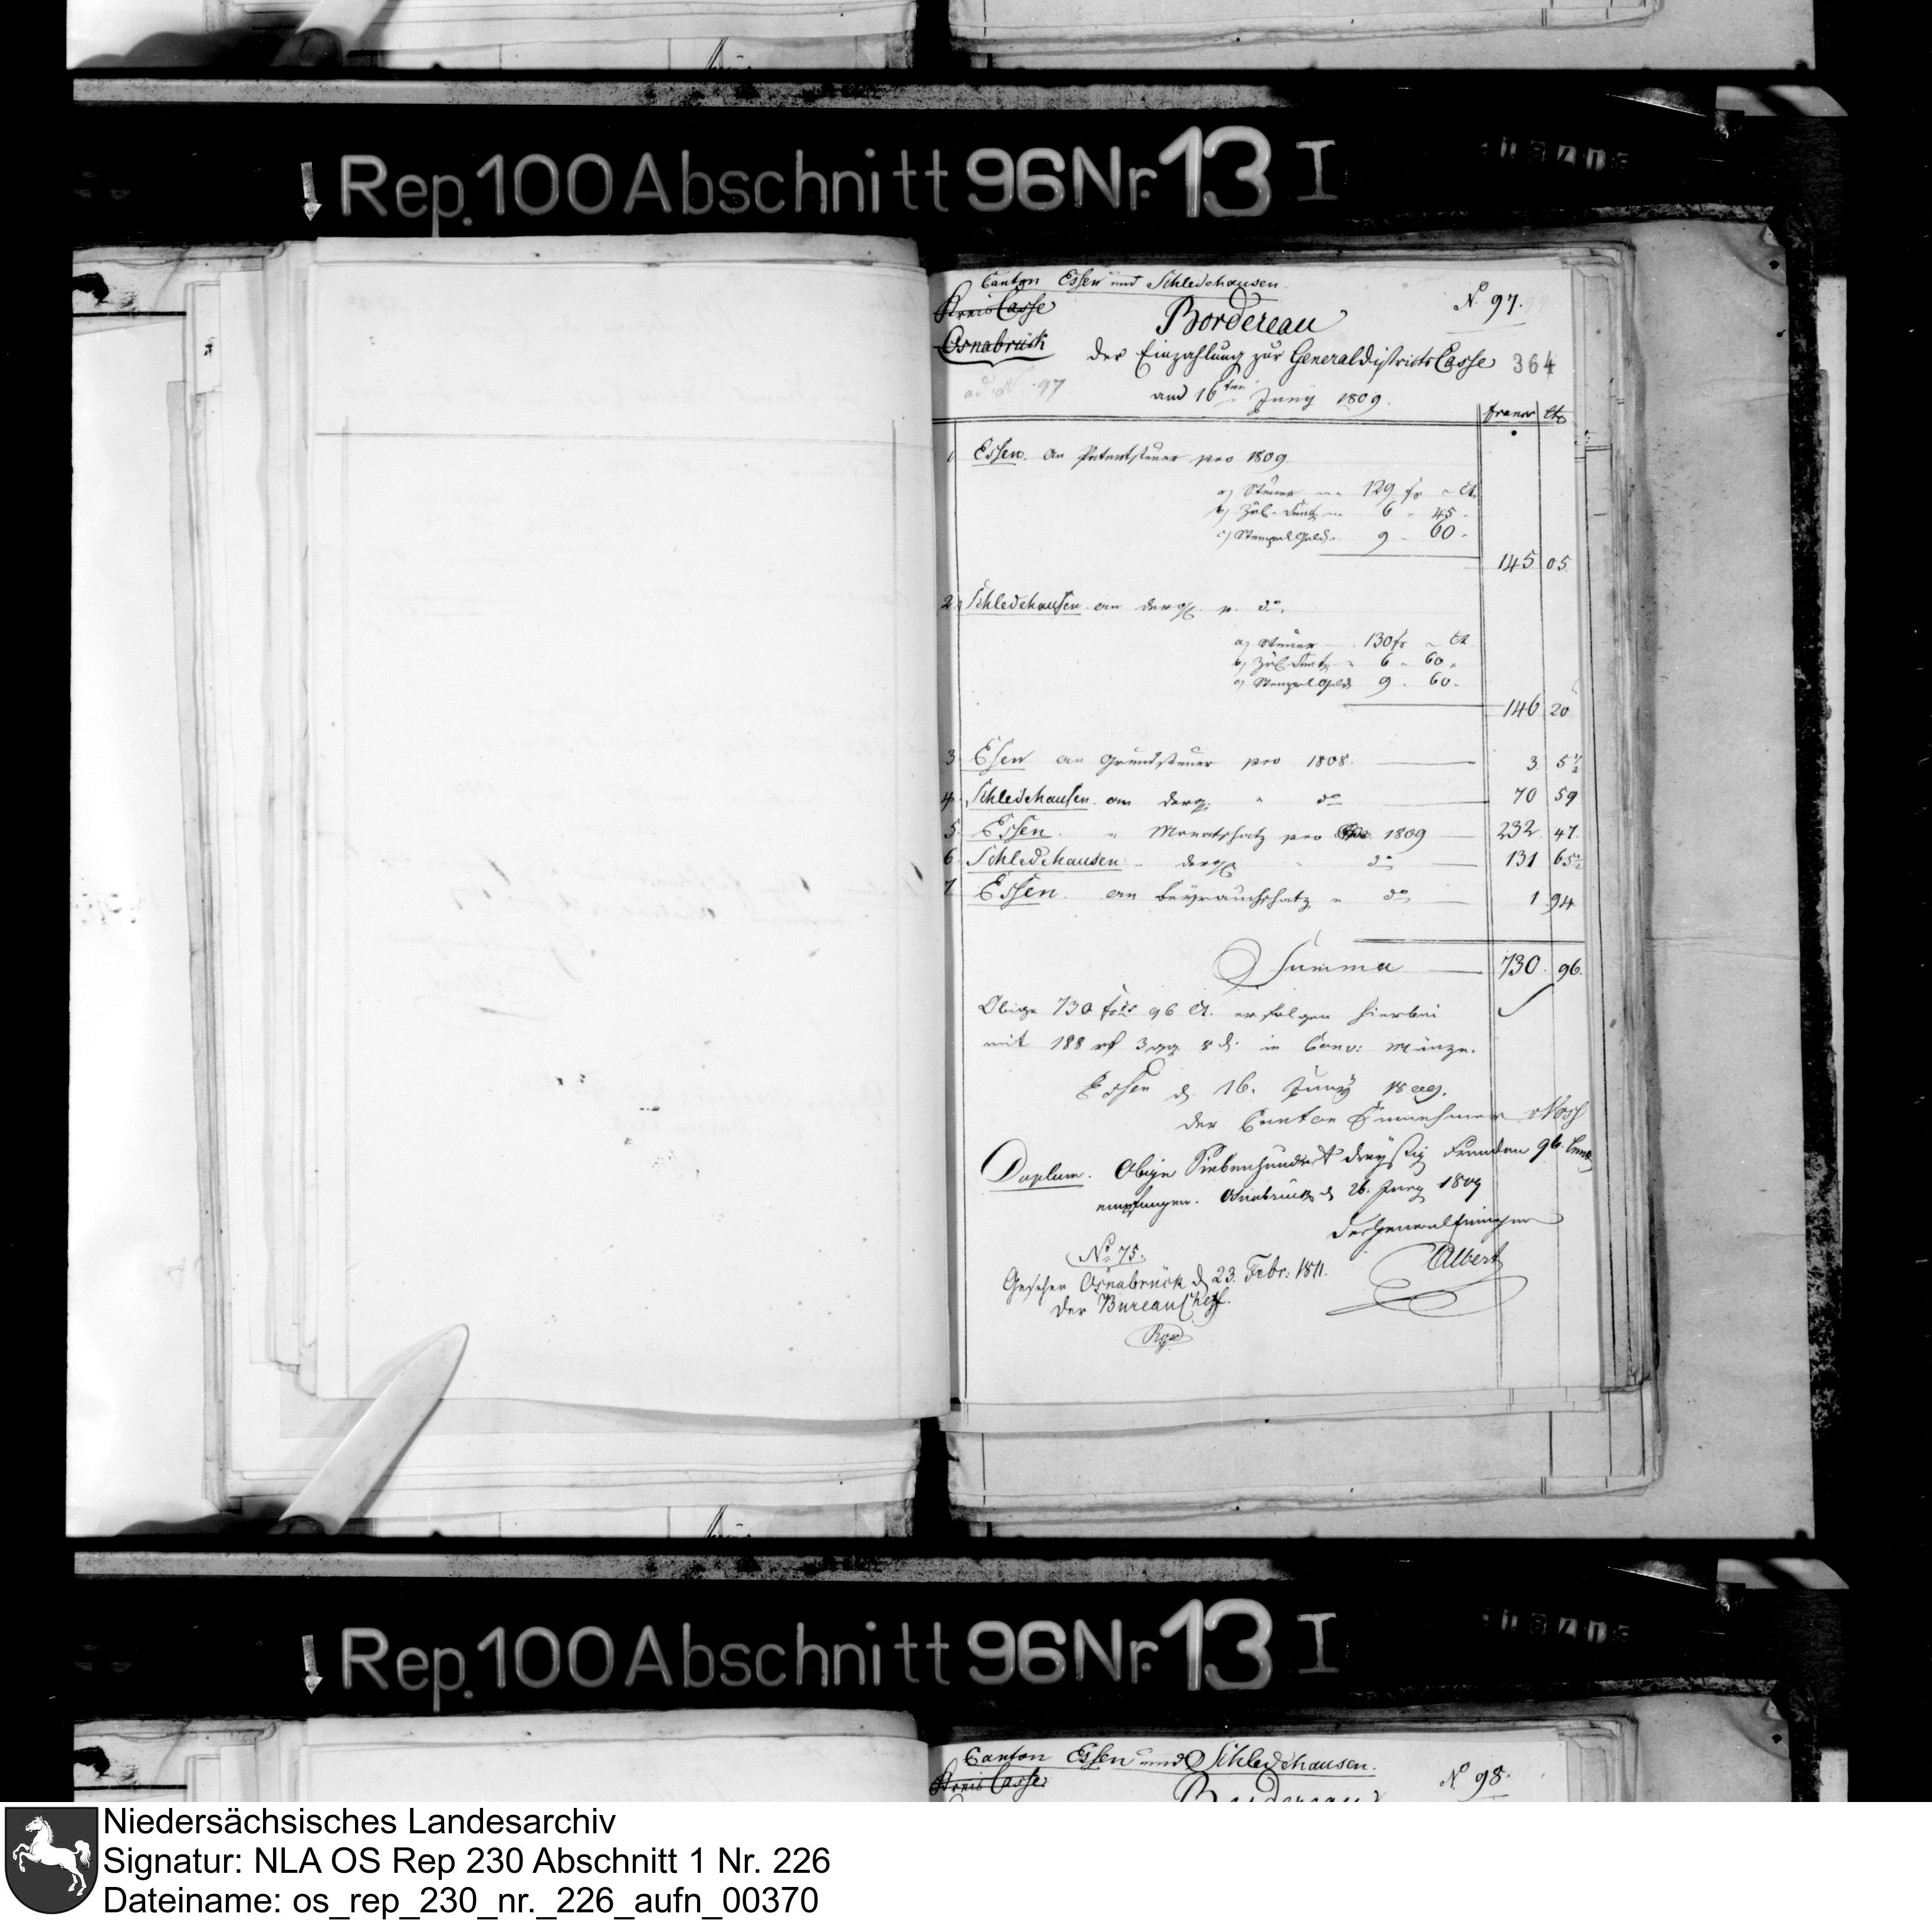 ↓ Rep. 100 Abschnitt 96 Nr. 13 I
Canton Essen und Schledehausen.
Kreis Casse
Osnabrück
N. 97.
Bordereau
der Einzahlung zur Generaldistricts Casse
364
ad N. 97
am 16ten Juny 1809.
francs cts
1 Essen. an Patentsteuer pro 1809
a) Steuer 129 fr " ct.
b) Zus. 6 " 45 "
c) Stempel Geld. 9 " 60 "
145 05
2. Schledehausen an dergl. p. do.
a) Steuer 130 fr " ct
b) Zus. 6 " 60 "
c) Stempel Geld 9 " 60 "
146 20
3 Essen an Grundsteuer pro 1808. 3 5 1/2
4. Schledehausen. an dergl. " do 70 59
5. Essen. " Monatschatz pro 1809 232 47
6 Schledehausen " dergl. " do 131 65 1/2
7. Essen. an " do 1 94
Summa 730. 96.
Obige 730 96 ct. erfolgen hierbei
mit 188 rt 3 gg. 8 d. in Conv: Münze.
Essen d. 16. Juny 1809.
der Canton Einnehmer
Duplum. Obige Siebenhundert dreyßig Franken 96. Cent.
empfangen. Osnabrück d 26. Juny 1809
der Generaleinnehmer
Albert
No 75.
Gesehen Osnabrück d 23. Febr: 1811.
der Bureau Cheff.
↓ Rep. 100 Abschnitt 96 Nr. 13 I
Canton Essen und Schledehausen.
Kreis Casse
N. 98.
Bordereau
Niedersächsisches Landesarchiv
Signatur: NLA OS Rep 230 Abschnitt 1 Nr. 226
Dateiname: os_rep_230_nr._226_aufn_00370